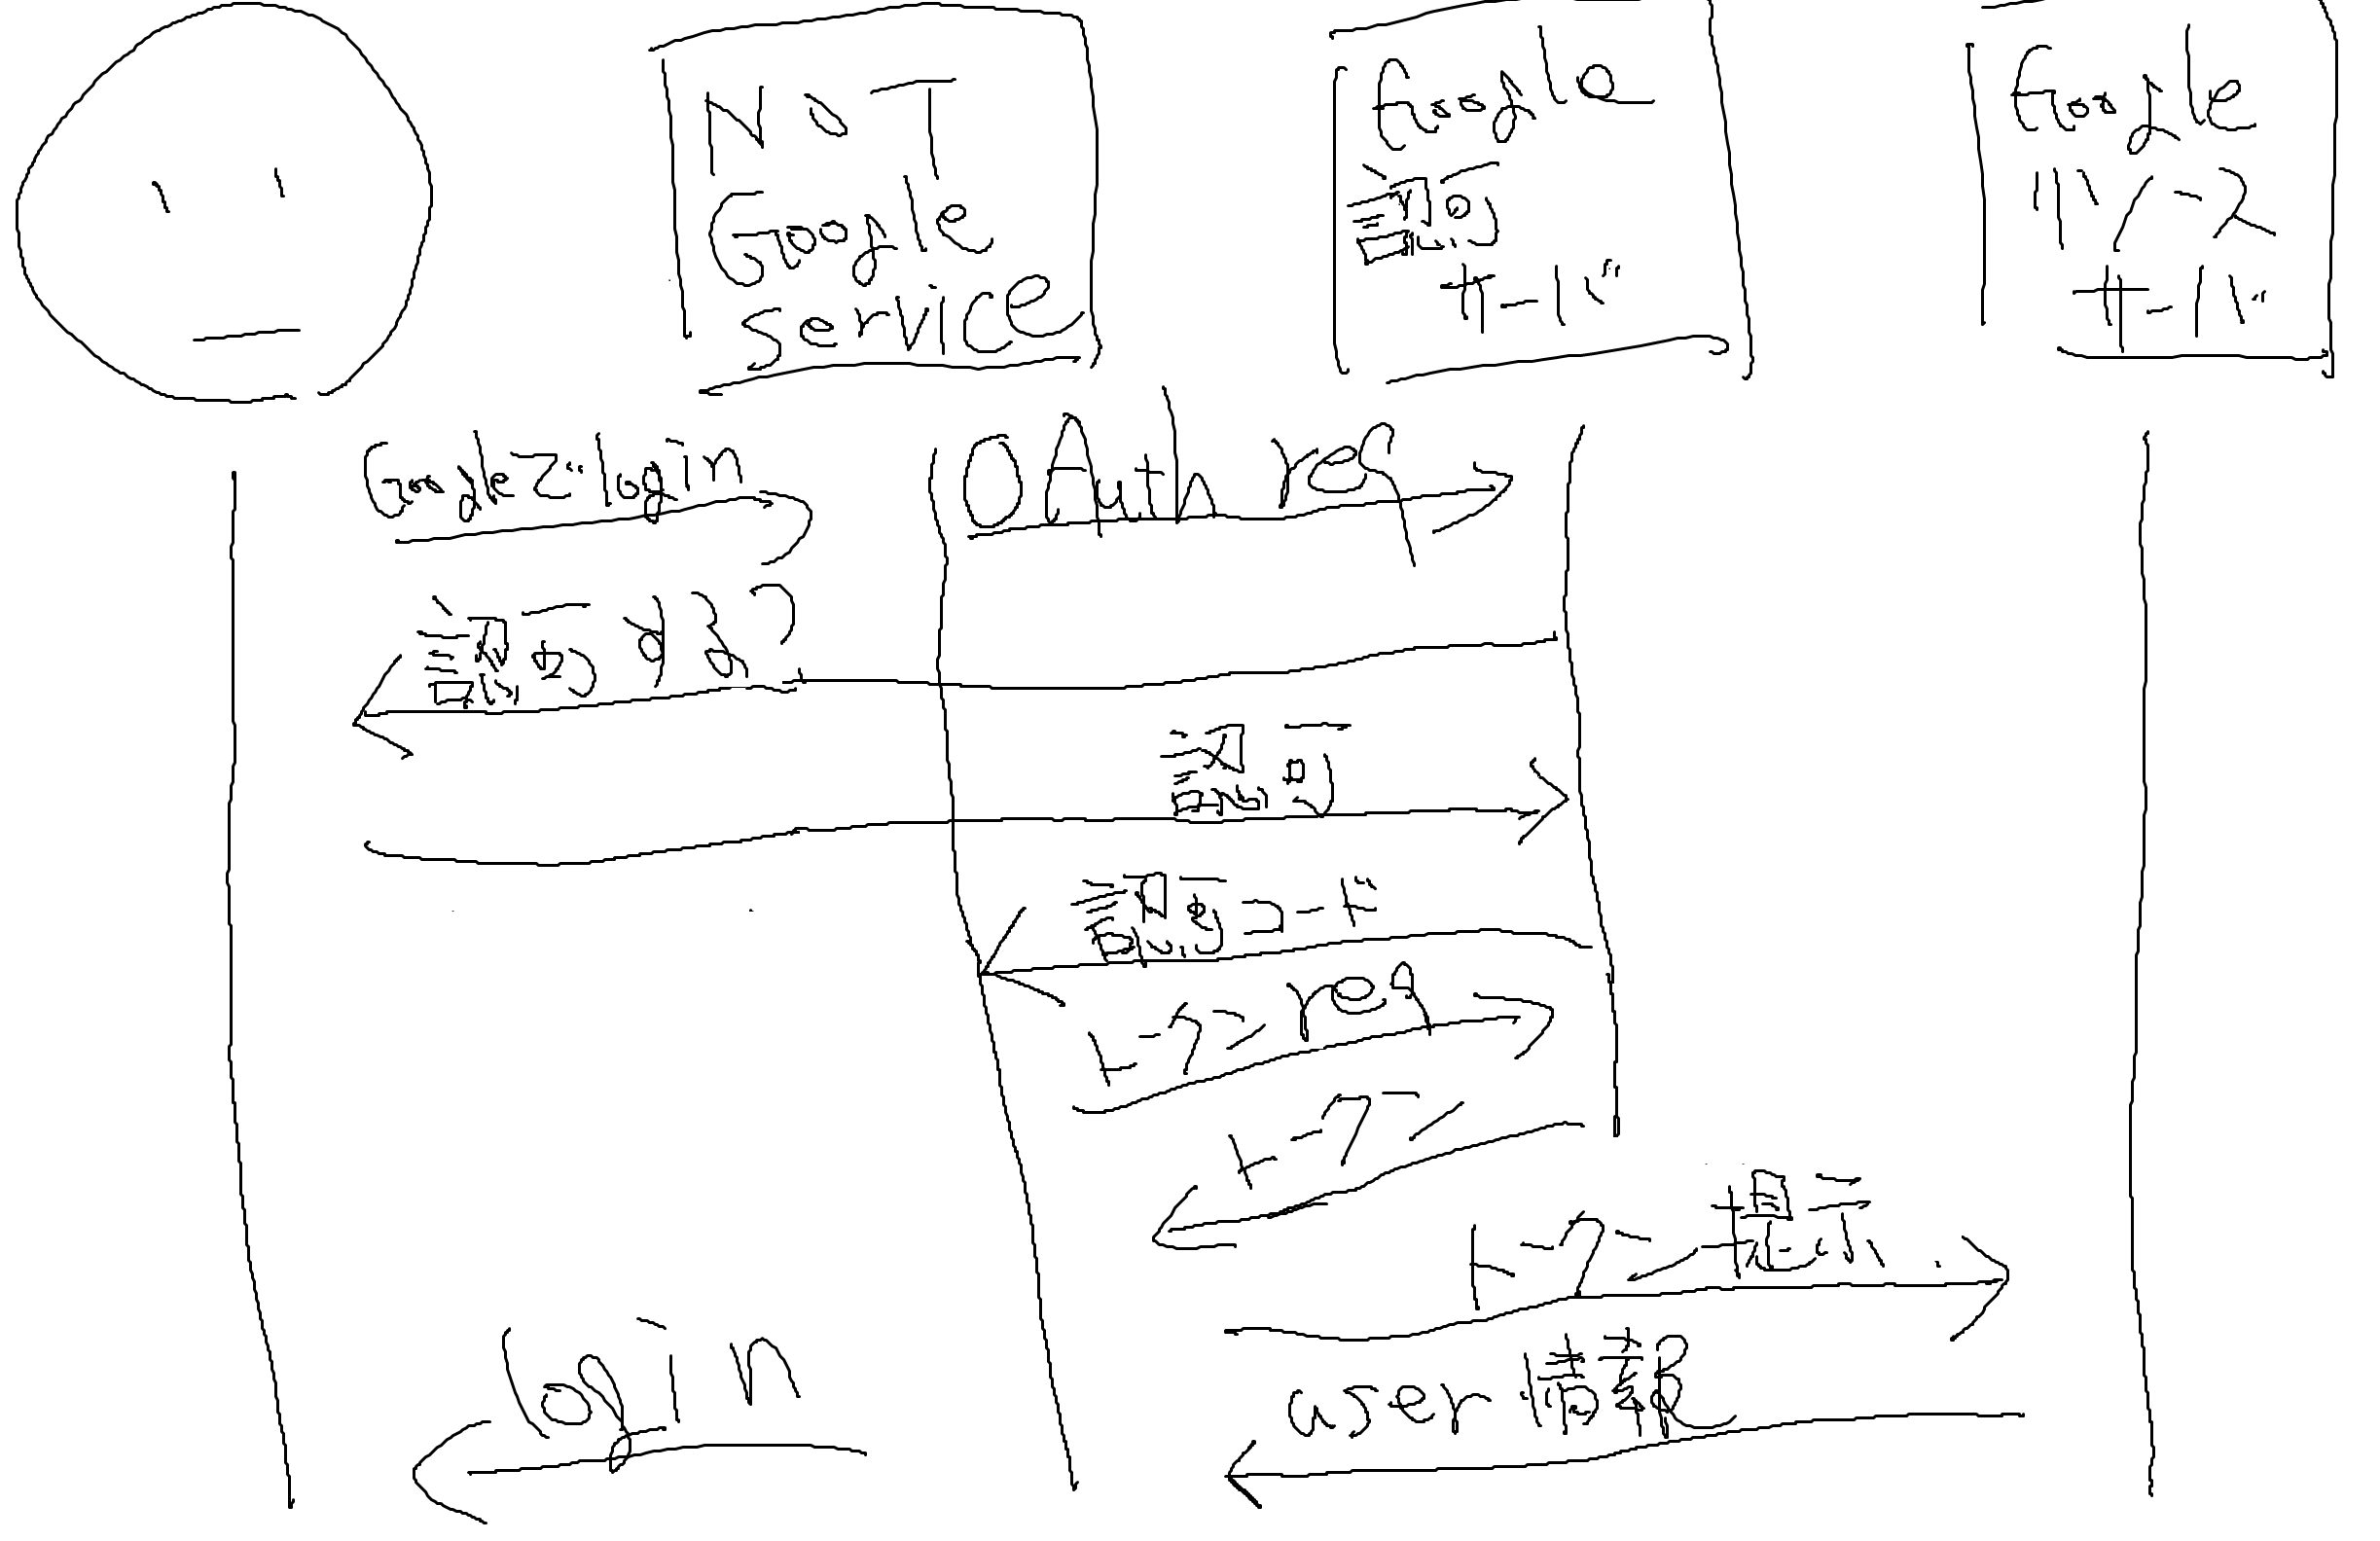 NOT
Google
service
Google
認可
サーバ
Google
リソース
サーバ
Googleでlogin
OAuth req
認可する?
認可
認可コード
トークン req
トークン
トークン提示
user情報
login